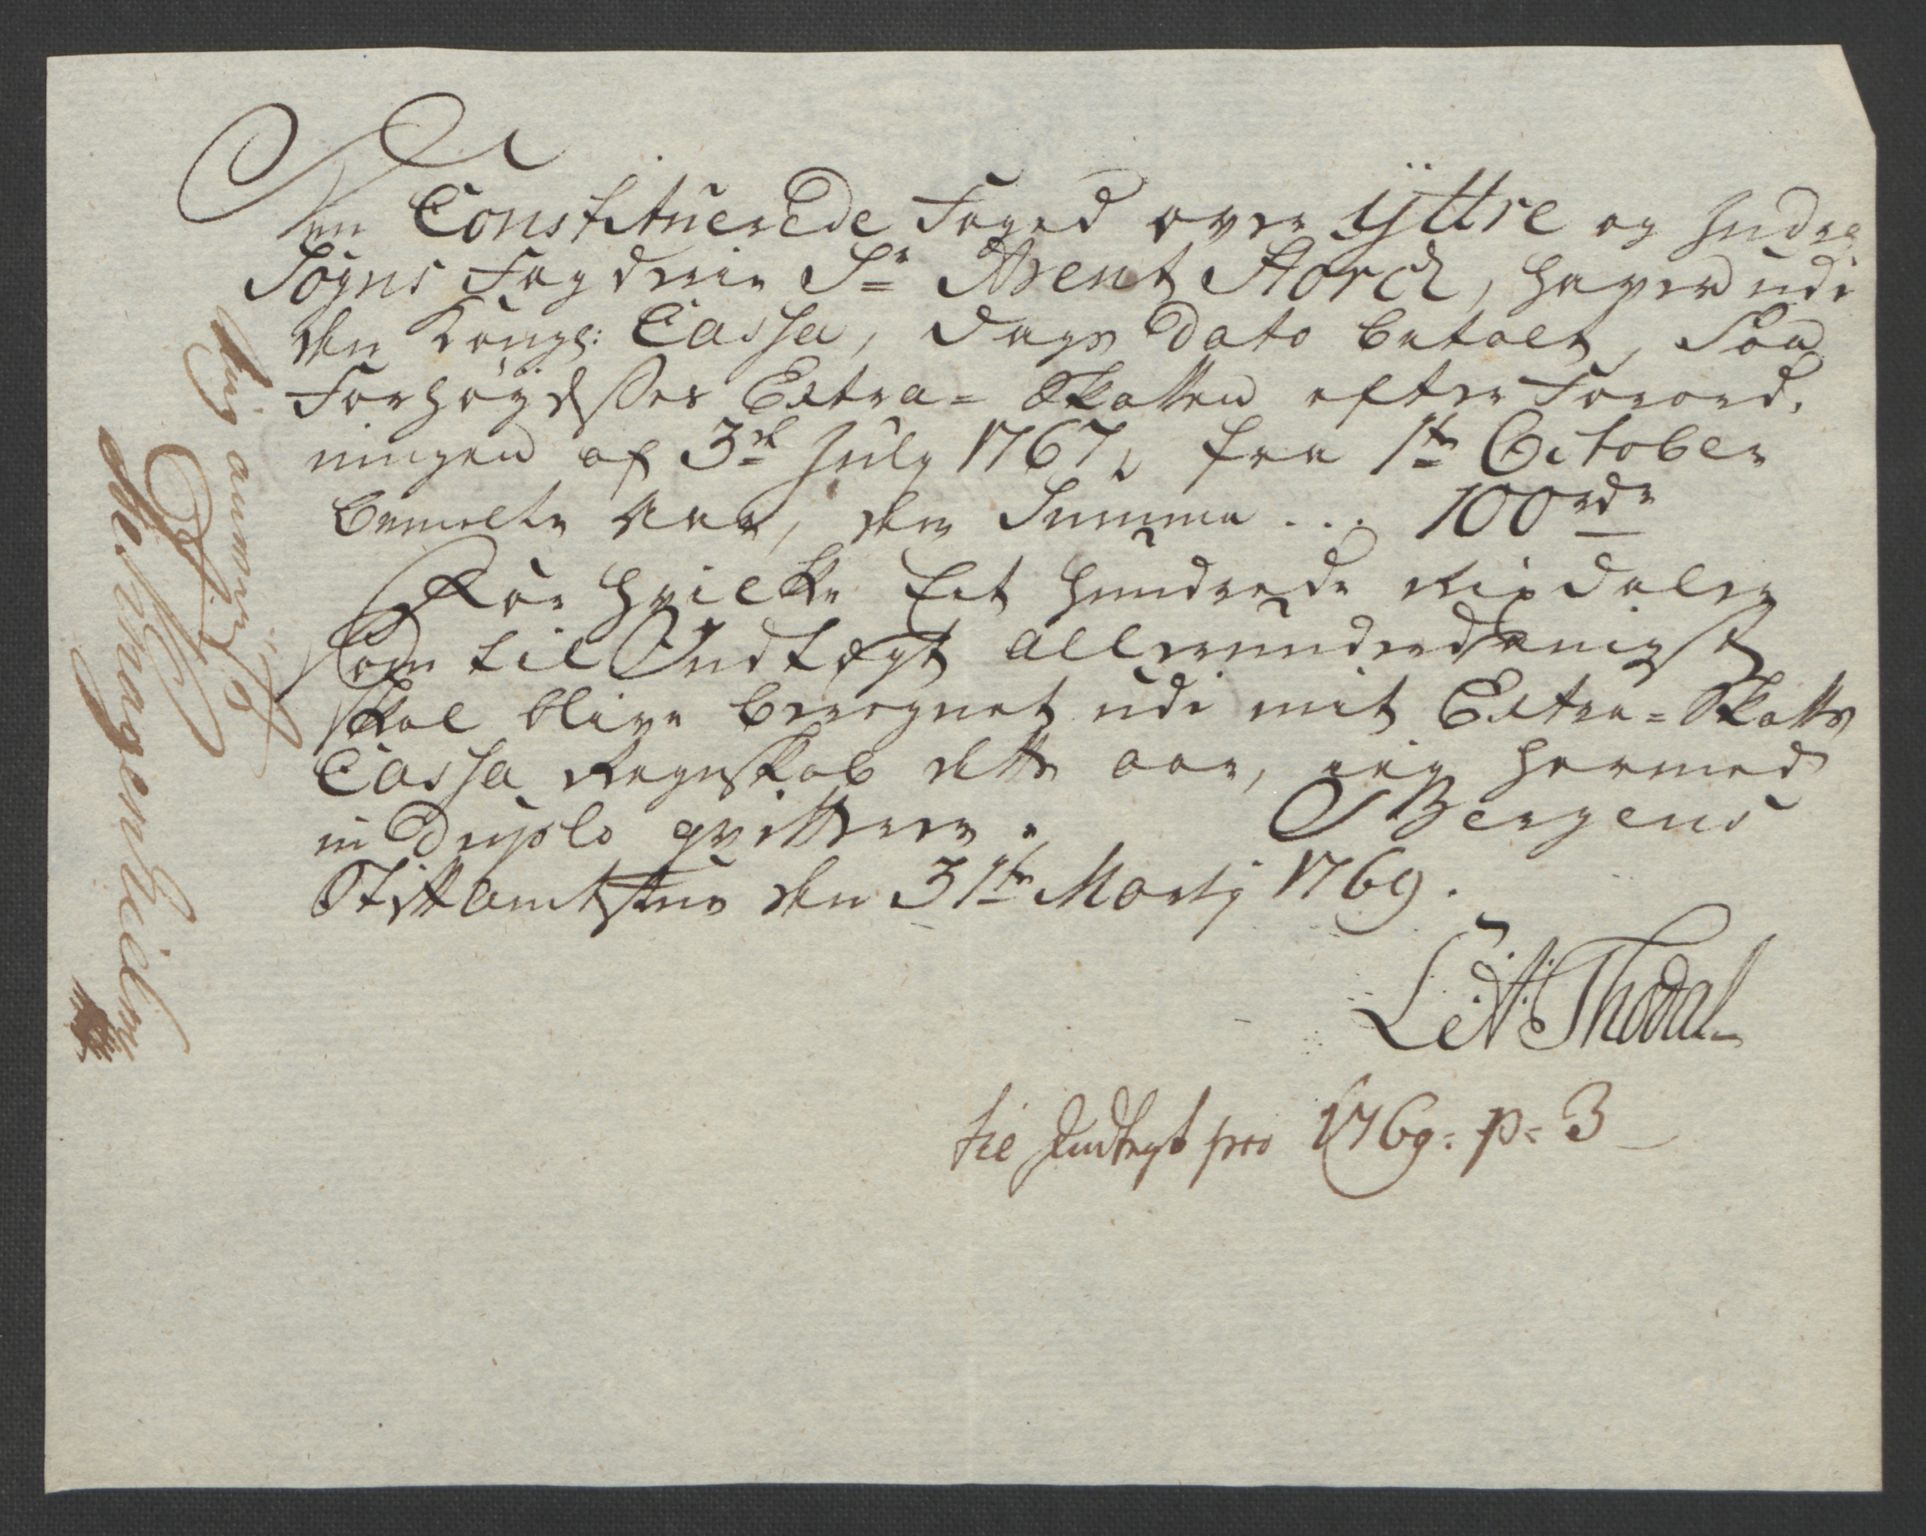 Den Constituerede Foged over ÿttre og Indre
Sogns Fogderie Sr Arent Storch, haver udi
den Kongl: Cassa, dags Dato betalt, Paa
Forhøyelses Extra-Skatten efter Forord,
ningen af 3de July 1767, fra 1te October
bemelte Aar, den Summa ... 100rdr
For hvilke Eet Hundrede Rixdaler
som til Indtægt allerunderdanigst
skal blive beregnet udi mit Extra-Skatts
Cassa Regnskab dette aar, ieg hermed
in Duplo qvitterer. Bergens
Stiftamtstue den 31te Martj 1769.
L: A: Thodal
til Indtegt pro 1769. p. 3